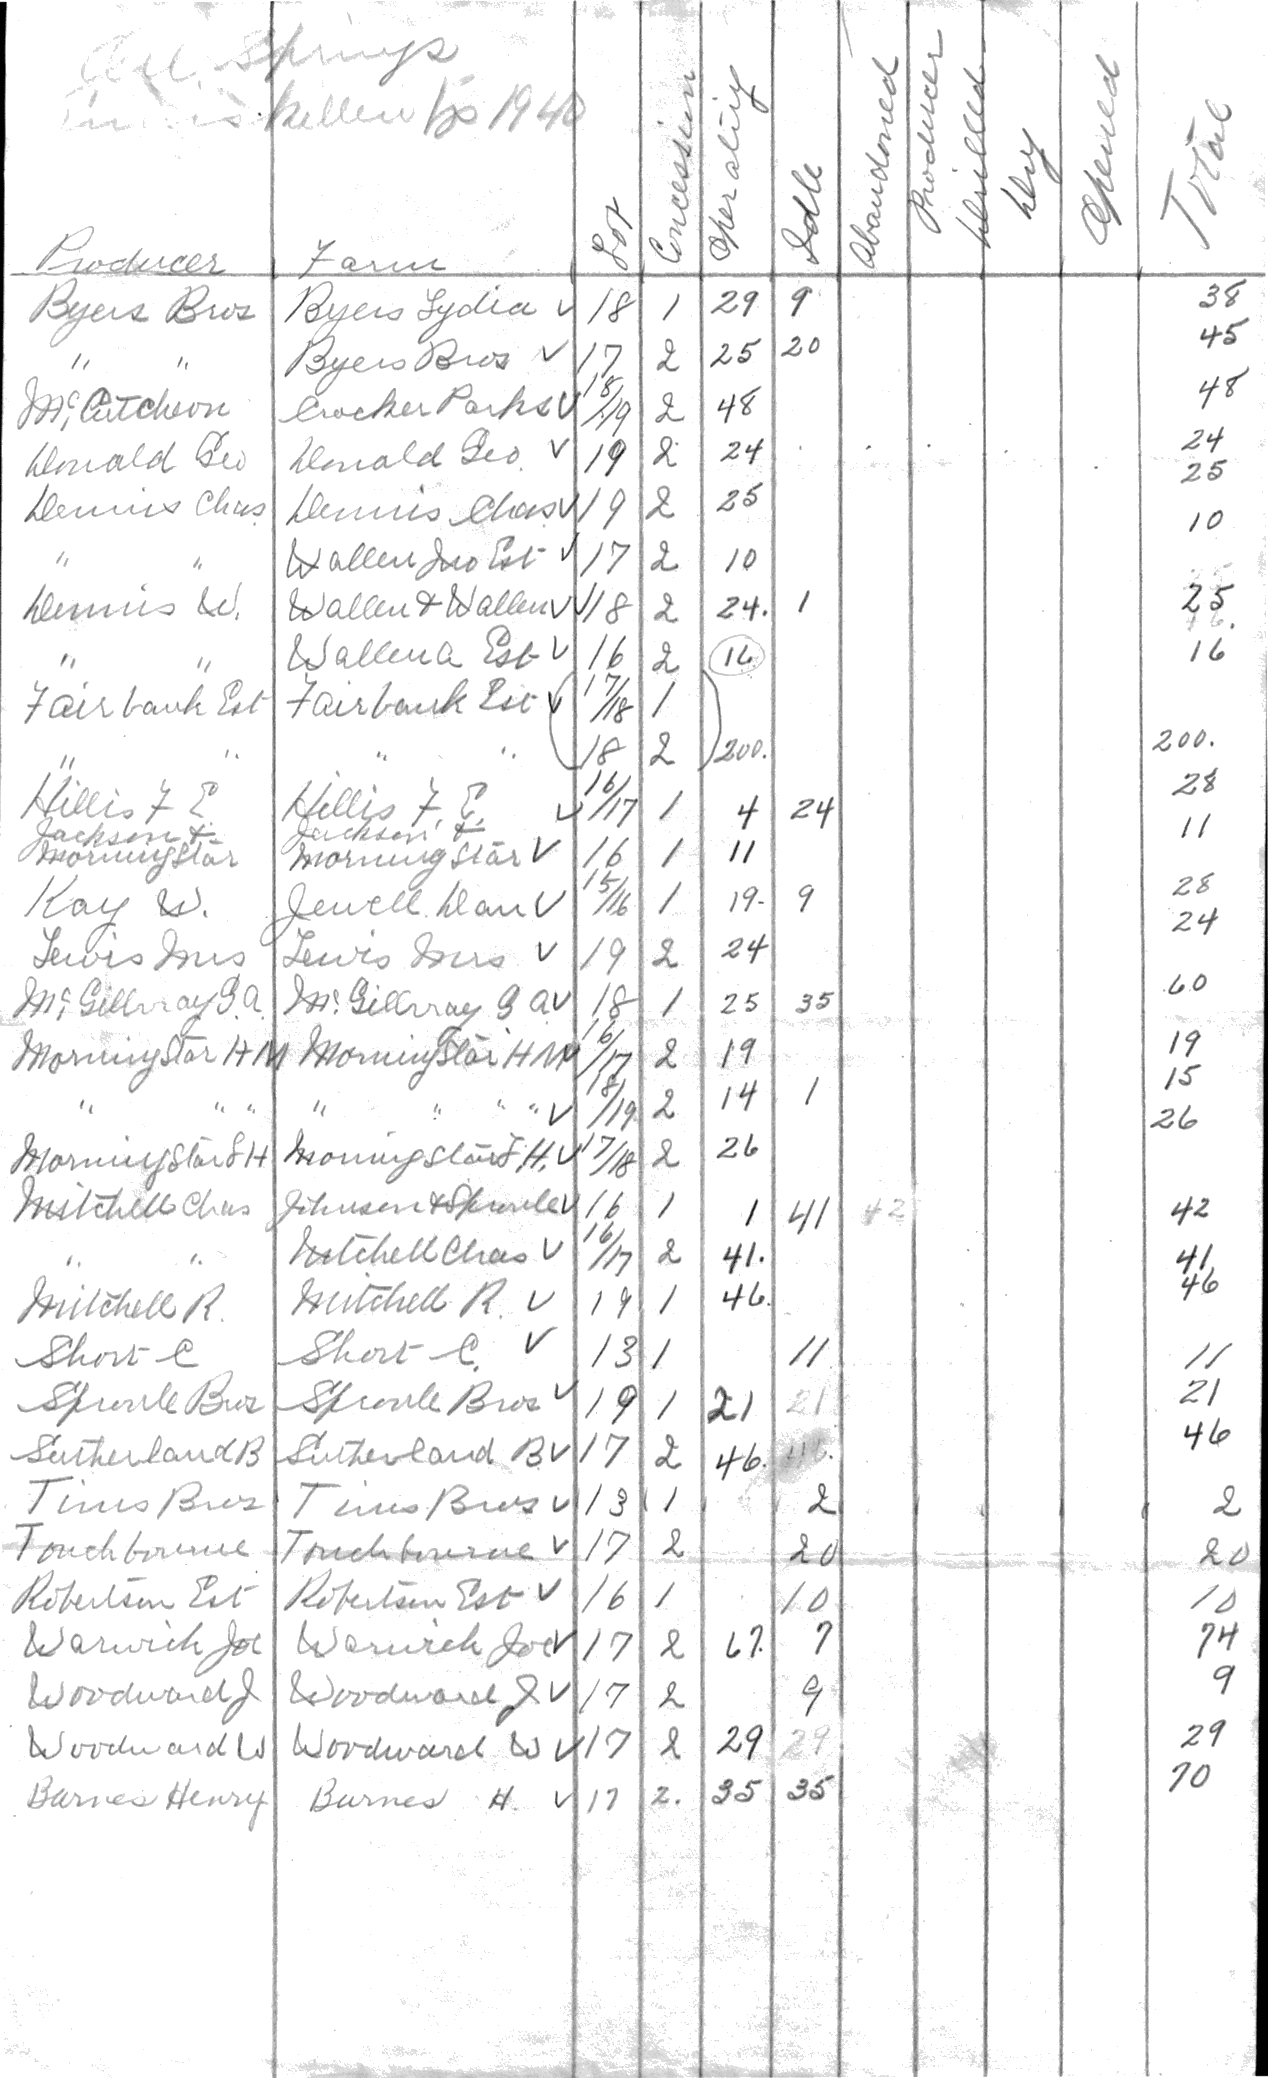 Oil Springs
Enniskillen Tp 1940
Producer Farm Lot Concession Operating Idle Abandoned Producer Drilled Dry Opened Total
Byers Bros Byers Lydia ✓ 18 1 29 9 38
" " Byers Bros ✓ 17 2 25 20 45
McCutcheon Crocker Parks ✓ 18/19 2 48 48
Donald Geo Donald Geo. ✓ 19 2 24 24
Dennis Chas. Dennis Chas ✓ 19 2 25 25
" " Wallen Jno Est ✓ 17 2 10 10
Dennis W. Wallen & Wallen ✓ ✓ 18 2 24. 1 25
" " Wallen A Est ✓ 16 2 16 16
Fairbank Est Fairbank Est ✓ 17/18 1
" " " " 18 2 200. 200.
Hillis F. E. Hillis F. E. ✓ 16/17 1 4 24 28
Jackson & Morningstar Jackson & Morningstar ✓ 16 1 11 11
Kay W. Jewell Dan ✓ 15/16 1 19- 9 28
Lewis Mrs Lewis Mrs ✓ 19 2 24 24
McGillvray G.A. McGillvray G A ✓ 18 1 25 35 60
Morningstar H M Morningstar H M ✓ 16/17 2 19 19
" " " " " " " ✓ 18/19 2 14 1 15
Morningstar F H Morningstar F H. ✓ 17/18 2 26 26
Mitchell Chas Johnson & Sproule ✓ 16 1 1 41 42 42
" " Mitchell Chas ✓ 16/17 2 41. 41
Mitchell R. Mitchell R. ✓ 19 1 46. 46
Short C Short C. ✓ 13 1 11 11
Sproule Bros Sproule Bros ✓ 19 1 21 21 21
Sutherland B Sutherland B. ✓ 17 2 46. 46. 46
Tims Bros Tims Bros ✓ 13 1 2 2
Touchbourne Touchbourne ✓ 17 2 20 20
Robertson Est Robertson Est ✓ 16 1 10 10
Warwick Joe Warwick Joe ✓ 17 2 67. 7 74
Woodward J Woodward J. ✓ 17 2 9 9
Woodward W Woodward W ✓ 17 2 29 29 29
Barnes Henry Barnes H. ✓ 17 2. 35 35 70